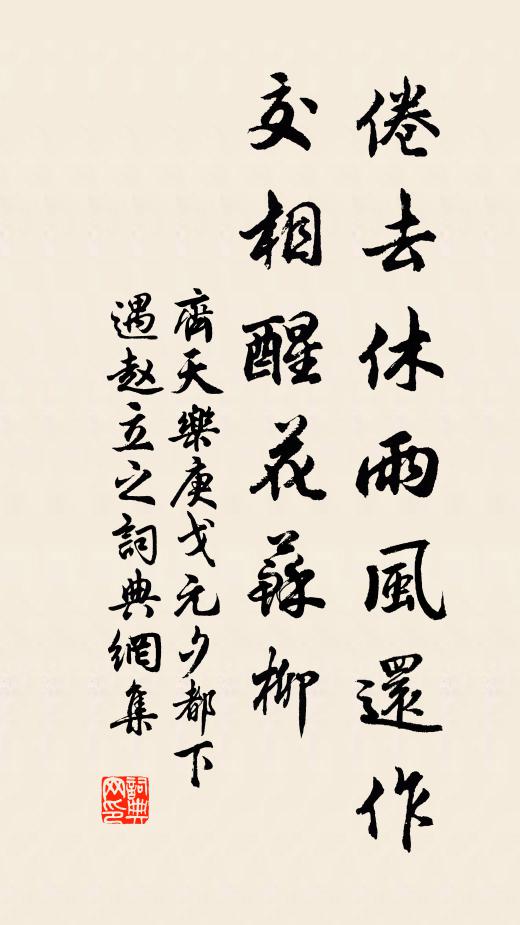 倦去休雨風還作
交相醒花蘇柳
齊天樂庚戈元夕都下
遇赵立之詞典網集
詞典
网印